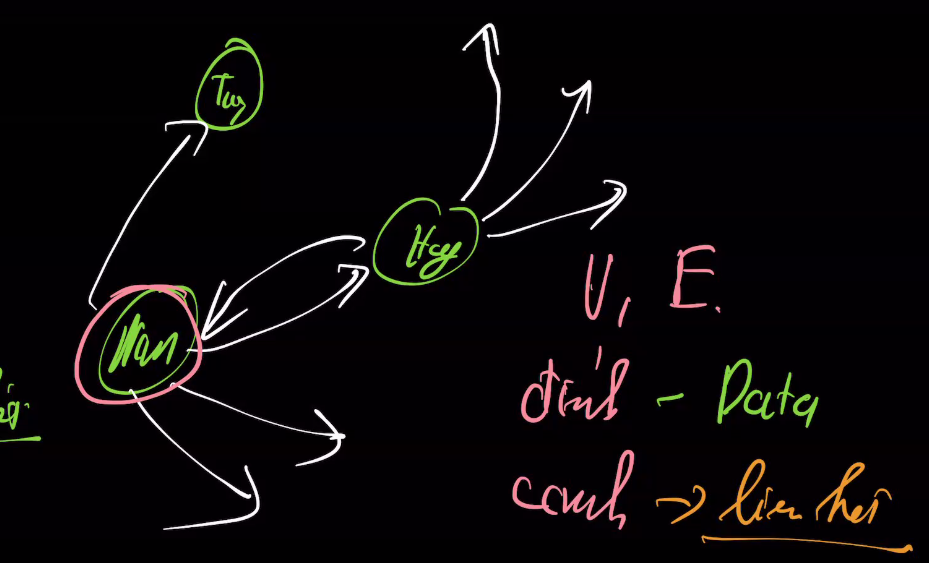 Tuy
Huy
Nam
V, E.
đỉnh - Data
cạnh → liên hệ